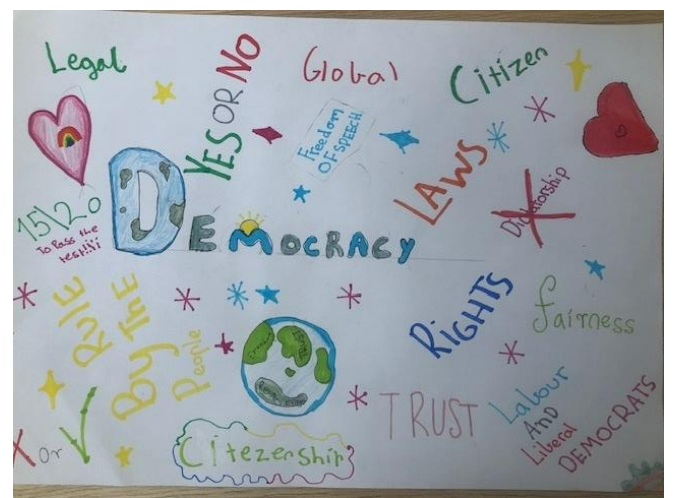 Legal
YES OR NO
Global
Citizen
Freedom
OF SPEECH
LAWS
Dictatorship
15\20
To Pass the
test!!!
DEMOCRACY
RULE
BY THE
People
RIGHTS
fairness
X or √
Citezenship
TRUST
Labour
AND
Liberal
DEMOCRATS